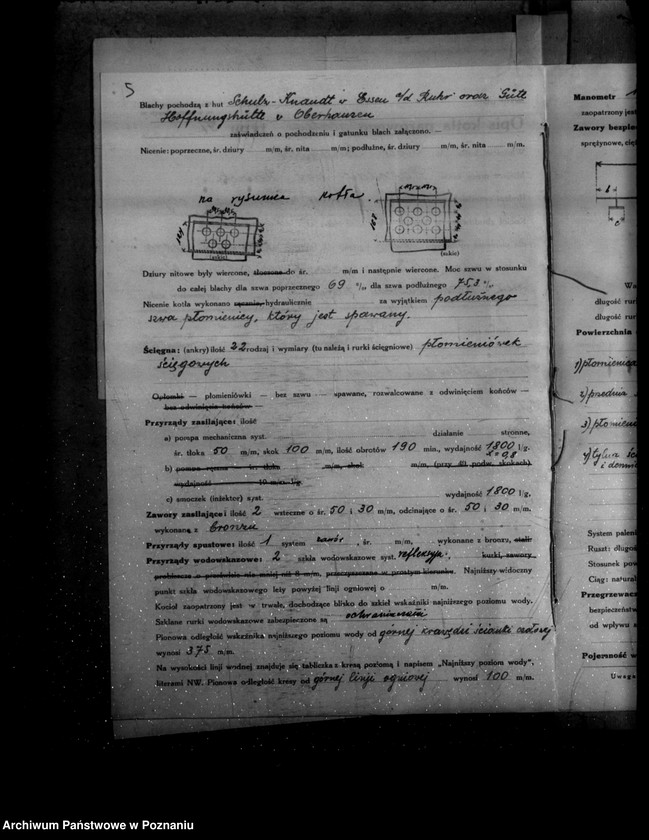 5
Blachy pochodzą z hut Schulz-Knaudt w Essen a/d Ruhr oraz Gute
Hoffnungshütte w Oberhausen
zaświadczeń o pochodzeniu i gatunku blach załączono. —
Nicenie: poprzeczne, śr. dziury m/m, śr. nita m/m; podłużne, śr. dziury m/m, śr. nita m/m.
na rysunku kotła
(szkic)
(szkic)
Dziury nitowe były wiercone, tłoczone do śr. m/m i następnie wiercone. Moc szwu w stosunku
do całej blachy dla szwa poprzecznego 69 % dla szwa podłużnego 75,3 %
Nicenie kotła wykonano ręcznie, hydraulicznie za wyjątkiem podłużnego
szwa płomienicy, który jest spawany.
Ścięgna: (ankry) ilość 32 rodzaj i wymiary (tu należą i rurki ścięgniowe) płomieniówek
ścięgowych
Opłomki — płomieniówki — bez szwu — spawane, rozwalcowane z odwinięciem końców —
bez odwinięcia końców. —
Przyrządy zasilające: ilość
a) pompa mechaniczna syst. działanie stronne,
śr. tłoka 50 m/m, skok 100 m/m, ilość obrotów 190 min., wydajność 1800 l/g.
b) pompa ręczna śr. tłoka m/m, skok m/m, (przy skokach)
wydajność l/g.
c) smoczek (inżektor) syst. wydajność 1800 l/g,
Zawory zasilające: ilość 2 wsteczne o śr. 50 i 30 m/m, odcinające o śr. 50 i 30 m/m,
wykonane z bronzu
Przyrządy spustowe: ilość 1 system zawór, śr. m/m, wykonane z bronzu, stali
Przyrządy wodowskazowe: 2 szkła wodowskazowe syst. refleksyj., kurki, zawory
probiercze o prześwicie nie mniej niż 8 m/m, przeczyszczane w prostym kierunku. Najniższy widoczny
punkt szkła wodowskazowego leży powyżej linji ogniowej o m/m.
Kocioł zaopatrzony jest w trwałe, dochodzące blisko do szkieł wskaźniki najniższego poziomu wody.
Szklane rurki wodowskazowe zabezpieczone są ochraniaczami
Pionowa odległość wskaźnika najniższego poziomu wody od górnej krawędzi ścianki czołowej
wynosi 375 m/m.
Na wysokości linji wodnej znajduje się tabliczka z kresą poziomą i napisem „Najniższy poziom wody",
literami NW. Pionowa odległość kresy od górnej linji ogniowej wynosi 100 m/m.
Manometr
zaopatrzony jest
Zawory bezpie
sprężynowe, cię
długość rur
długość rur
Powierzchnia
1) płomienica
2) przednia
3) płomien
System palen
Ruszt: długoś
Stosunek pow
Ciąg: natural
Przegrzewacz
bezpieczeństw
od wpływu s
Pojemność w
Uwaga
Archiwum Państwowe w Poznaniu